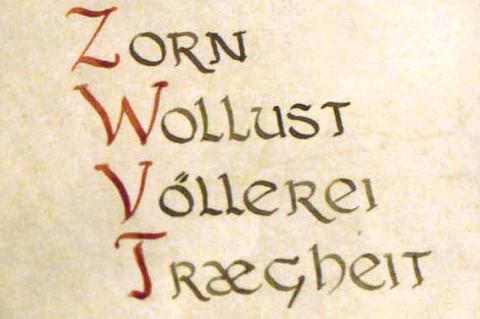 Zorn
Wollust
Völlerei
Trægheit